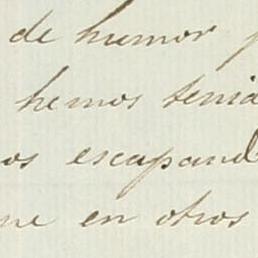 de humor p
hemos tenid
os escapand
ne en otros